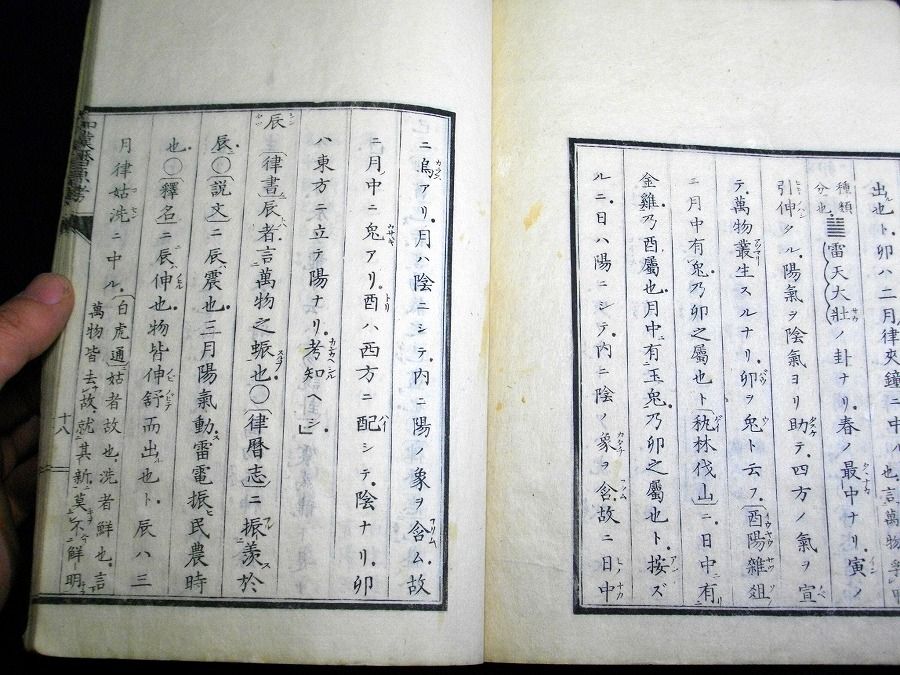 出也ト卯ハ二月律夾鐘ニ中ル也言萬物
種類分也䷡(雷天大壯)ノ卦ナリ春ノ最中ナリ寅ノ
引伸タル陽氣ヲ陰氣ヨリ助テ四方ノ氣ヲ宣
テ萬物叢生スルナリ卯ヲ兔ト云フ〔酉陽雜俎〕
ニ月中有兔乃卯之屬也ト〔秇林伐山〕ニ日中有
金雞乃酉屬也月中有玉兔乃卯之屬也ト按ズ
ルニ日ハ陽ニシテ内ニ陰ノ象ヲ含故ニ日中
ニ烏アリ月ハ陰ニシテ内ニ陽ノ象ヲ含ム故
ニ月中ニ兔アリ酉ハ西方ニ配シテ陰ナリ卯
ハ東方ニ立テ陽ナリ考知ヘシ」
辰〔律書〕辰者言萬物之蜄也〇〔律暦志〕ニ振羨於
辰〇〔説文〕ニ辰震也三月陽氣動雷電振民農時
也〇〔釋名〕ニ辰伸也物皆伸舒而出也ト辰ハ三
月律姑洗ニ中ル〔白虎通〕姑者故也洗者鮮也言
萬物皆去故就其新莫不鮮明
十八